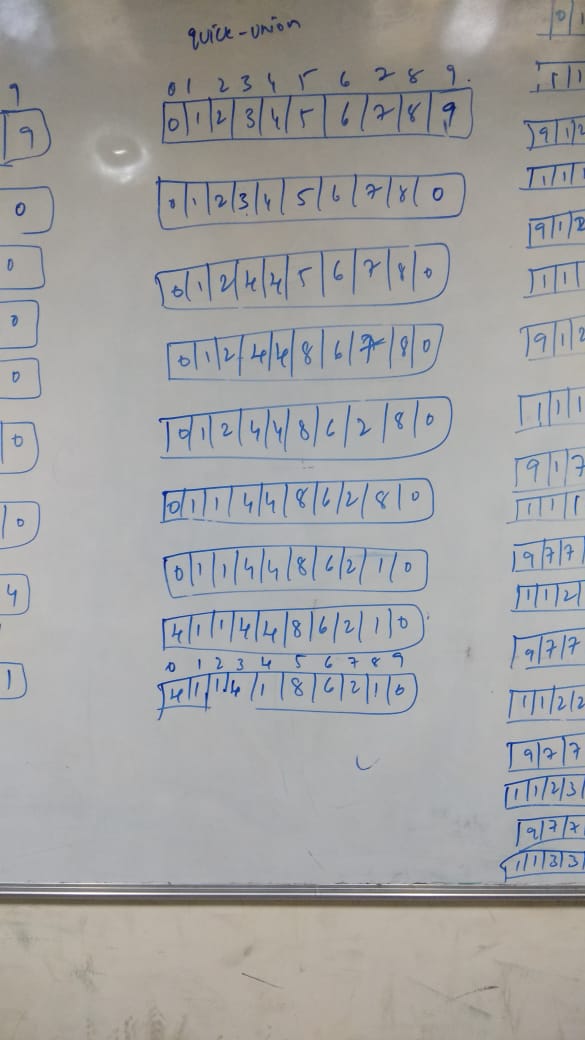 quick-union
0 1 2 3 4 5 6 7 8 9.
0|1|2|3|4|5|6|7|8|9
0|1|2|3|4|5|6|7|8|0
0|1|2|4|4|5|6|7|8|0
0|1|2|4|4|8|6|7|8|0
0|1|2|4|4|8|6|2|8|0
0|1|1|4|4|8|6|2|8|0
0|1|1|4|4|8|6|2|1|0
4|1|1|4|4|8|6|2|1|0
0 1 2 3 4 5 6 7 8 9
4|1|1|4|1|8|6|2|1|0
9
9
0
0
0
0
0
0
4
1
0|1
1|1
9|1|2
1|1|1
9|1|2
1|1
9|1|2
1|1|1
9|1|7
1|1|1
9|7|7
1|1|2
9|7|7
1|1|2|2
9|7|7
1|1|2|3
9|7|7
1|1|3|3